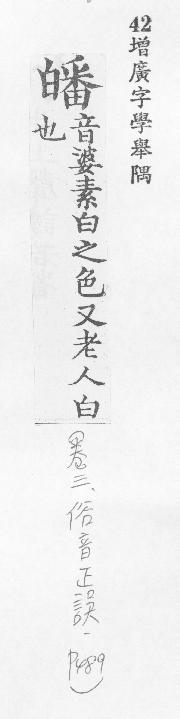 42增廣字學舉隅
皤音婆素白之色又老人白
也
卷三、俗音正誤-P489